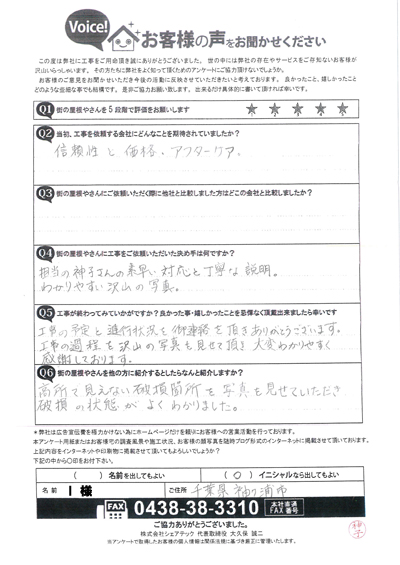 Voice!
お客様の声をお聞かせください
この度は弊社に工事をご用命頂き誠にありがとうございました。世の中には弊社の存在やサービスをご存知ないお客様が
沢山いらっしゃいます。その方たちに弊社をよく知って頂くためのアンケートにご協力頂けないでしょうか。
お客様のご意見をお聞かせいただき今後の活動に反映させていただきたいと考えております。良かったこと、嬉しかったこと
どのような些細な事でも結構です。是非ご協力お願い致します。出来るだけ具体的に書いて頂ければ幸いです。
Q1 街の屋根やさんを5段階で評価をお願いします ★ ★ ★ ★ ★
Q2 当初、工事を依頼する会社にどんなことを期待されていましたか?
信頼性と価格・アフターケア。
Q3 街の屋根やさんにご依頼いただく際に他社と比較しました方はどこの会社と比較しましたか?
Q4 街の屋根やさんに工事をご依頼いただいた決め手は何ですか?
担当の神子さんの素早い対応と丁寧な説明。
わかりやすい沢山の写真。
Q5 工事が終わってみていかがですか?良かった事・嬉しかったことを忌憚なく頂戴出来ましたら幸いです
工事の予定と進行状況を御連絡を頂きありがとうございます。
工事の過程を沢山の写真を見せて頂き大変わかりやすく
感謝しております。
Q6 街の屋根やさんを他の方に紹介するとしたらなんと紹介しますか?
高所で見えない破損箇所を写真を見せていただき
破損の状態がよくわかりました。
*弊社は広告宣伝費を極力かけない為にホームページだけを頼りにお客様への営業活動を行っております。
本アンケート用紙またはお客様宅の調査風景や施工状況、お客様の顔写真を随時ブログ形式のインターネットに掲載させて頂いております。
上記内容をインターネットや印刷物に掲載させて頂いてもよろしいでしょうか?
下記の中から〇印をお付下さい。
( ) 名前を出してもよい ( ○ ) イニシャルなら出してもよい
名前 I 様 ご住所 千葉県袖ヶ浦市
FAX 0438-38-3310 本社直通 FAX番号
ご協力ありがとうございました。
株式会社シェアテック 代表取締役 大久保 誠二
※アンケートで取得したお客様の個人情報は関係法規に基づき厳正に管理いたします。
神子